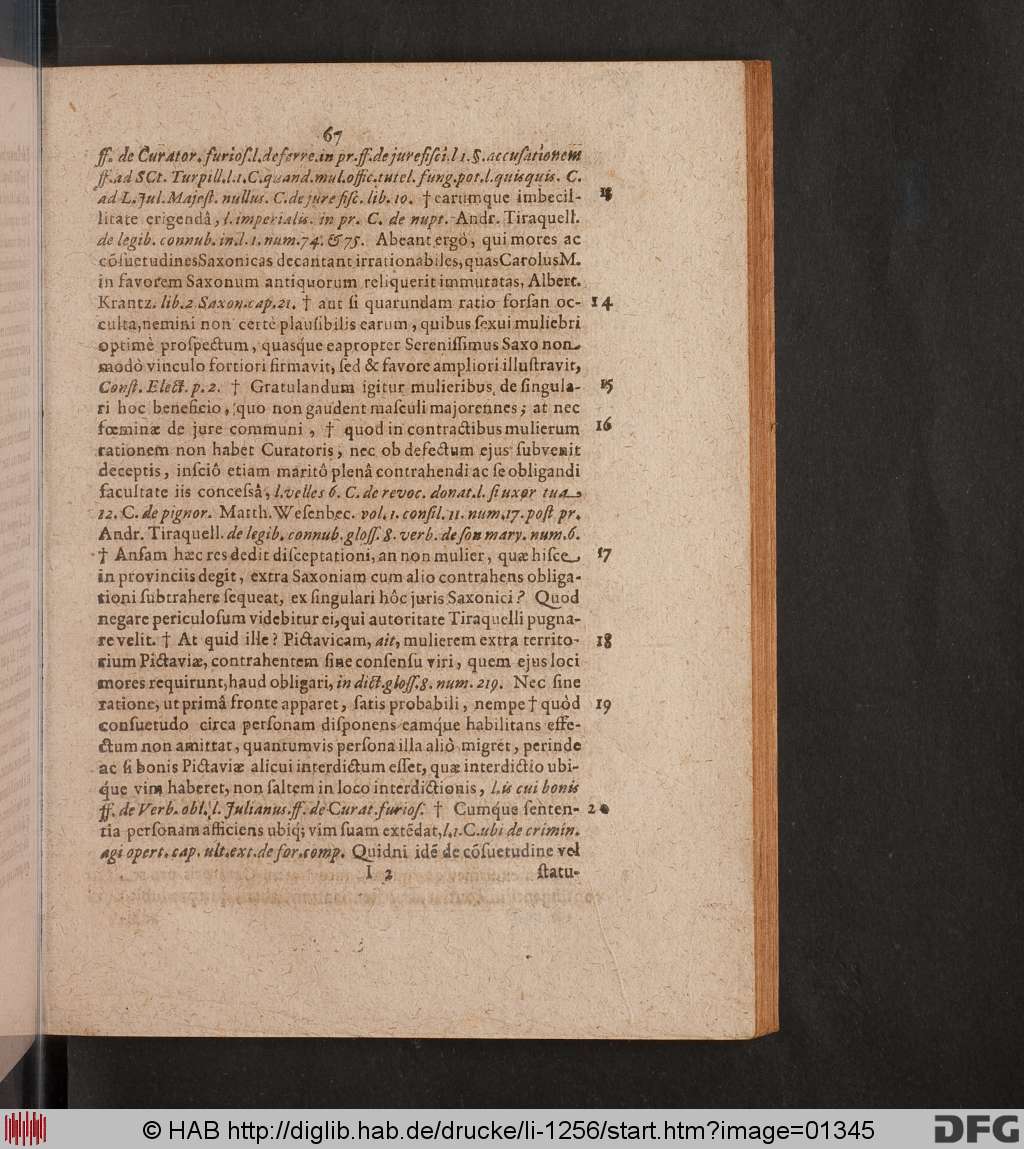 67
ff. de Curator. furioſ. l. deferre. in pr. ff. de jure fiſci. l 1. §. accuſationem
ff. ad SCt. Turpill. l. 1. C. quand. mul. offic. tutel. fung. pot. l. quisquis. C.
ad L. Jul. Majeſt. nullus. C. de jure fiſc. lib. 10. † earumque imbecil- 13
litate erigendâ, l. imperialis. in pr. C. de nupt. Andr. Tiraquell.
de legib. connub. in l. 1. num. 74. & 75. Abeant ergò, qui mores ac
cõſuetudines Saxonicas decantant irrationabiles, quas Carolus M.
in favorem Saxonum antiquorum reliquerit immutatas, Albert.
Krantz. lib. 2 Saxon. cap. 21. † aut ſi quarundam ratio forſan oc- 14
culta, nemini non certè plauſibilis earum, quibus ſexui muliebri
optimè proſpectum, quasque eapropter Sereniſſimus Saxo non
modò vinculo fortiori firmavit, ſed & favore ampliori illuſtravit,
Conſt. Elect. p. 2. † Gratulandum igitur mulieribus de ſingula- 15
ri hoc beneficio, quo non gaudent maſculi majorennes; at nec
fœminæ de jure communi, † quod in contractibus mulierum 16
rationem non habet Curatoris, nec ob defectum ejus ſubvenit
deceptis, inſciô etiam maritô plenâ contrahendi ac ſe obligandi
facultate iis conceſſâ, l. velles 6. C. de revoc. donat. l. ſi uxor tua
12. C. de pignor. Matth. Weſenbec. vol. 1. conſil. 11. num. 17. poſt pr.
Andr. Tiraquell. de legib. connub. gloſſ. 8. verb. de ſon mary. num. 6.
† Anſam hæc res dedit diſceptationi, an non mulier, quæ hiſce 17
in provinciis degit, extra Saxoniam cum alio contrahens obliga-
tioni ſubtrahere ſe queat, ex ſingulari hôc juris Saxonici? Quod
negare periculoſum videbitur ei, qui autoritate Tiraquelli pugna-
re velit. † At quid ille? Pictavicam, ait, mulierem extra territo- 18
rium Pictaviæ, contrahentem ſine conſenſu viri, quem ejus loci
mores requirunt, haud obligari, in dict. gloſſ. 8. num. 219. Nec ſine
ratione, ut primâ fronte apparet, ſatis probabili, nempe † quòd 19
conſuetudo circa perſonam diſponens eamque habilitans effe-
ctum non amittat, quantumvis perſona illa aliò migret, perinde
ac ſi bonis Pictaviæ alicui interdictum eſſet, quæ interdictio ubi-
que vim haberet, non ſaltem in loco interdictionis, l. is cui bonis
ff. de Verb. obl. l. Julianus. ff. de Curat. furioſ. † Cumque ſenten- 20
tia perſonam afficiens ubiq; vim ſuam extẽdat, l. 1. C. ubi de crimin.
agi opert. cap. ult. ext. de for. comp. Quidni idẽ de cõſuetudine vel
I 2 ſtatu-
© HAB http://diglib.hab.de/drucke/li-1256/start.htm?image=01345
DFG